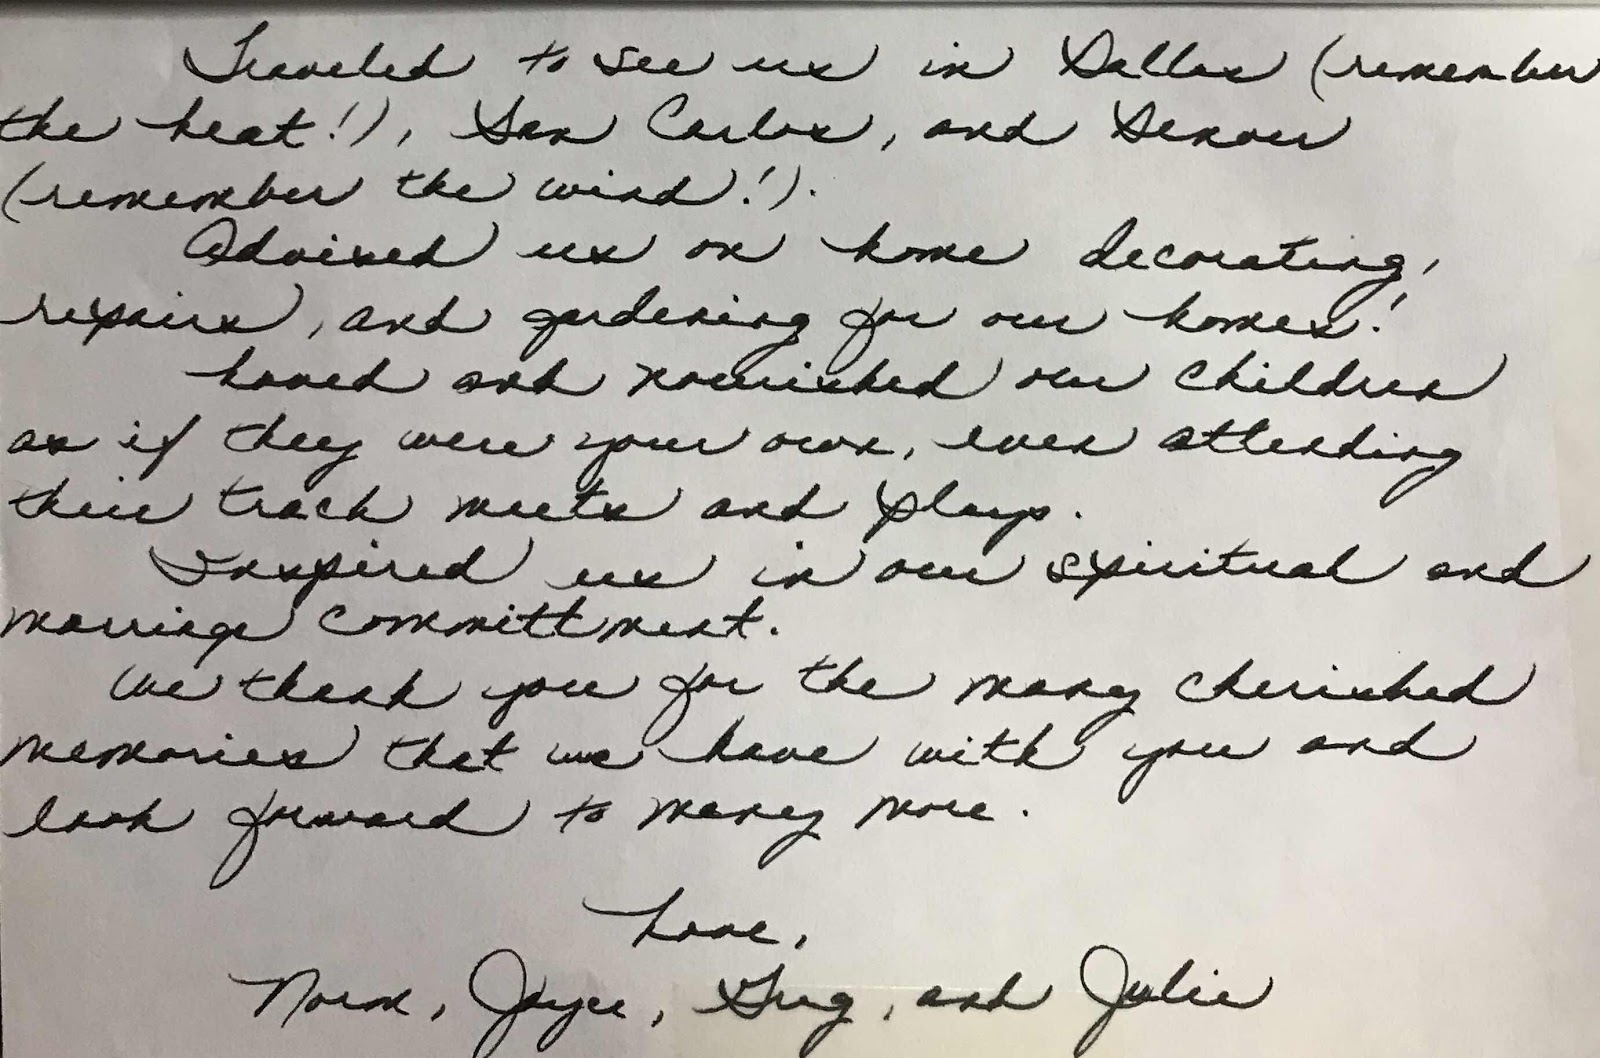 Traveled to see us in Dallas (remember
the heat!), San Carlos, and Denver
(remember the wind!).
Advised us on home decorating,
repairs, and gardening for our homes!
Loved and nourished our children
as if they were your own, even attending
their track meets and plays.
Inspired us in our spiritual and
marriage committment.
We thank you for the many cherished
memories that we have with you and
look forward to many more.
Love,
Norm, Joyce, Greg, and Julie